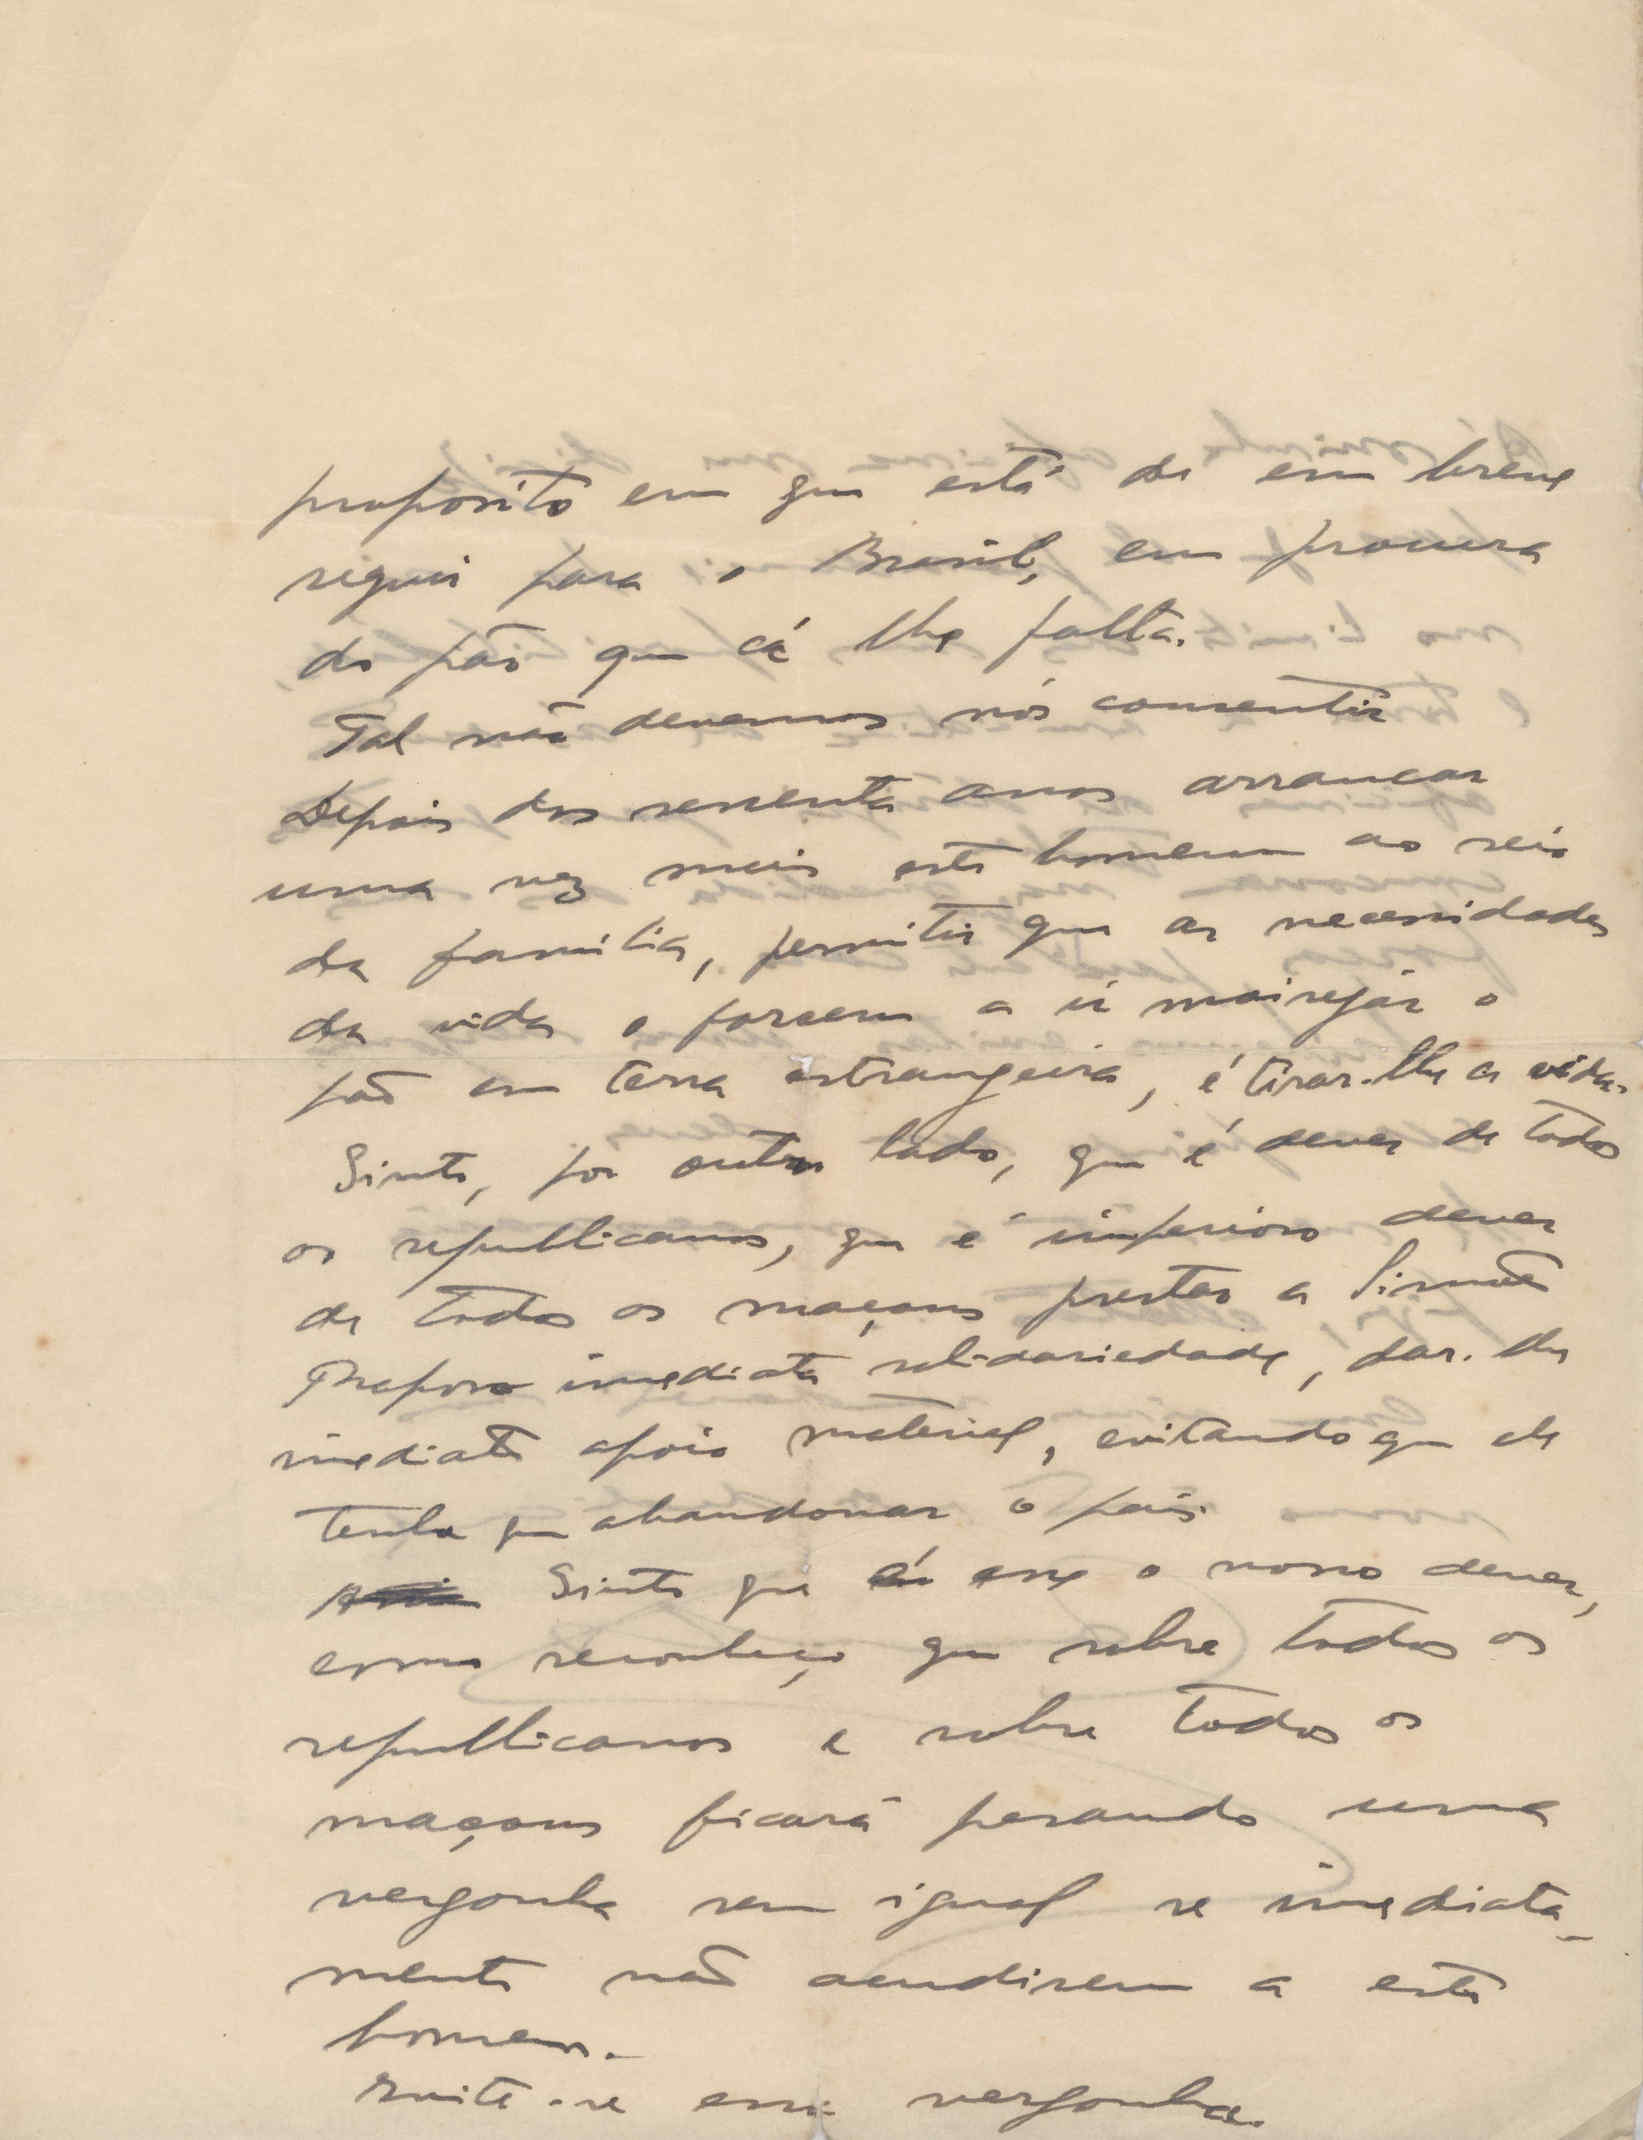 proposito em que está de em breve
seguir para o Brasil, em procura
do pão que cá lhe falta.
Tal não devemos nós consentir
Depois dos sessenta anos arrancar
uma vez mais este homem ao seio
da familia, permitir que as necessidades
da vida o forcem a ir moirejár o
pão em terra estrangeira, é tirar-lhe a vida.
Sinto, por outro lado, que é dever de todos
os republicanos, que é imperioso dever
de todos os maçons prestar a Simões
Raposo imediata solidariedade, dar-lhe
imediato apoio material, evitando que ele
tenha que abandonar o país.
Sinto que é esse o nosso dever,
como reconheço que sobre todos os
republicanos e sobre todos os
maçons ficará pesando uma
vergonha sem igual se imediata-
mente não acudirem a este
homem.
Evite-se essa vergonha.